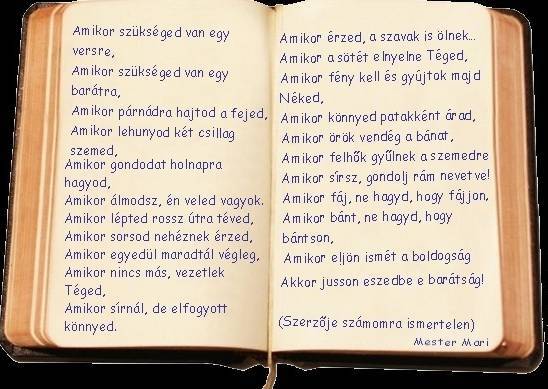 Amikor szükséged van egy
versre,
Amikor szükséged van egy
barátra,
Amikor párnádra hajtod a fejed,
Amikor lehunyod két csillag
szemed,
Amikor gondodat holnapra
hagyod,
Amikor álmodsz, én veled vagyok.
Amikor lépted rossz útra téved,
Amikor sorsod nehéznek érzed,
Amikor egyedül maradtál végleg,
Amikor nincs más, vezetlek
Téged,
Amikor sírnál, de elfogyott
könnyed.
Amikor érzed, a szavak is ölnek...
Amikor a sötét elnyelne Téged,
Amikor fény kell és gyújtok majd
Néked,
Amikor könnyed patakként árad,
Amikor örök vendég a bánat,
Amikor felhők gyűlnek a szemedre
Amikor sírsz, gondolj rám nevetve!
Amikor fáj, ne hagyd, hogy fájjon,
Amikor bánt, ne hagyd, hogy
bántson,
Amikor eljön ismét a boldogság
Akkor jusson eszedbe e barátság!
(Szerzője számomra ismertelen)
Mester Mari